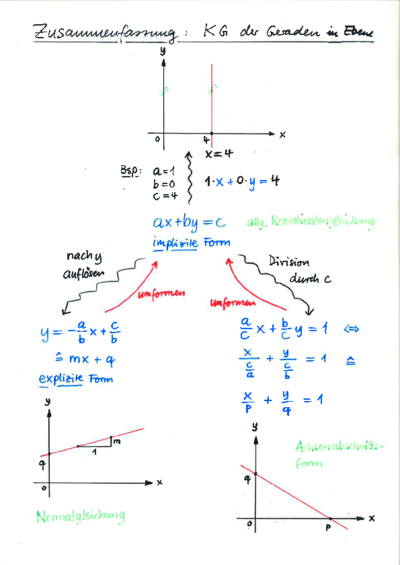 Zusammenfassung: KG der Geraden in Ebene
y
0 4 x
x=4
Bsp: a=1
b=0
c=4
1·x+0·y=4
ax+by=c allg. Koordinatengleichung
implizite Form
nach y
auflösen
umformen
umformen
Division
durch c
y=-a/b x+c/b
≙ mx+q
explizite Form
a/c x + b/c y = 1 ⇔
x/(c/a) + y/(c/b) = 1 ≙
x/p + y/q = 1
y
q
1
m
0
x
Normalgleichung
Achsenabschnitts-
form
y
q
0
p
x